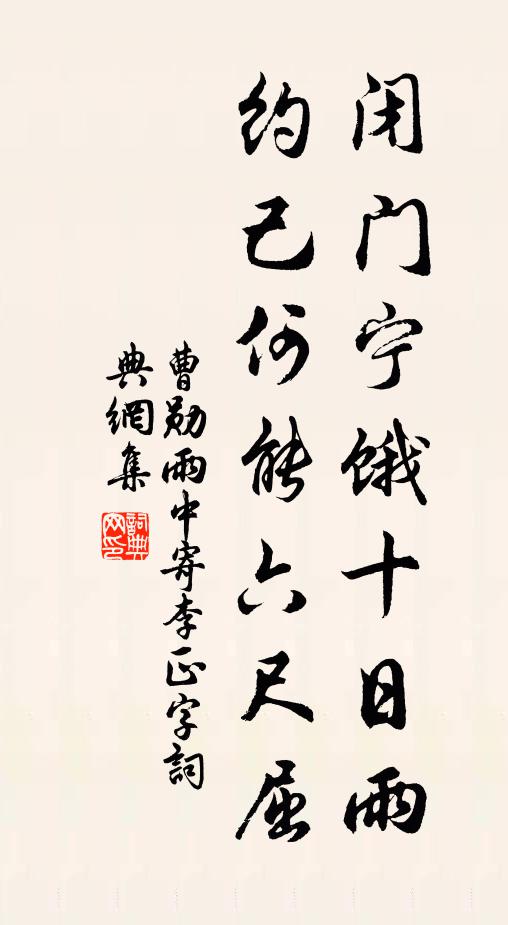 闭门宁饿十日雨
约己何能六尺屈
曹勋雨中寄李正字詞
典網集
詞典網印